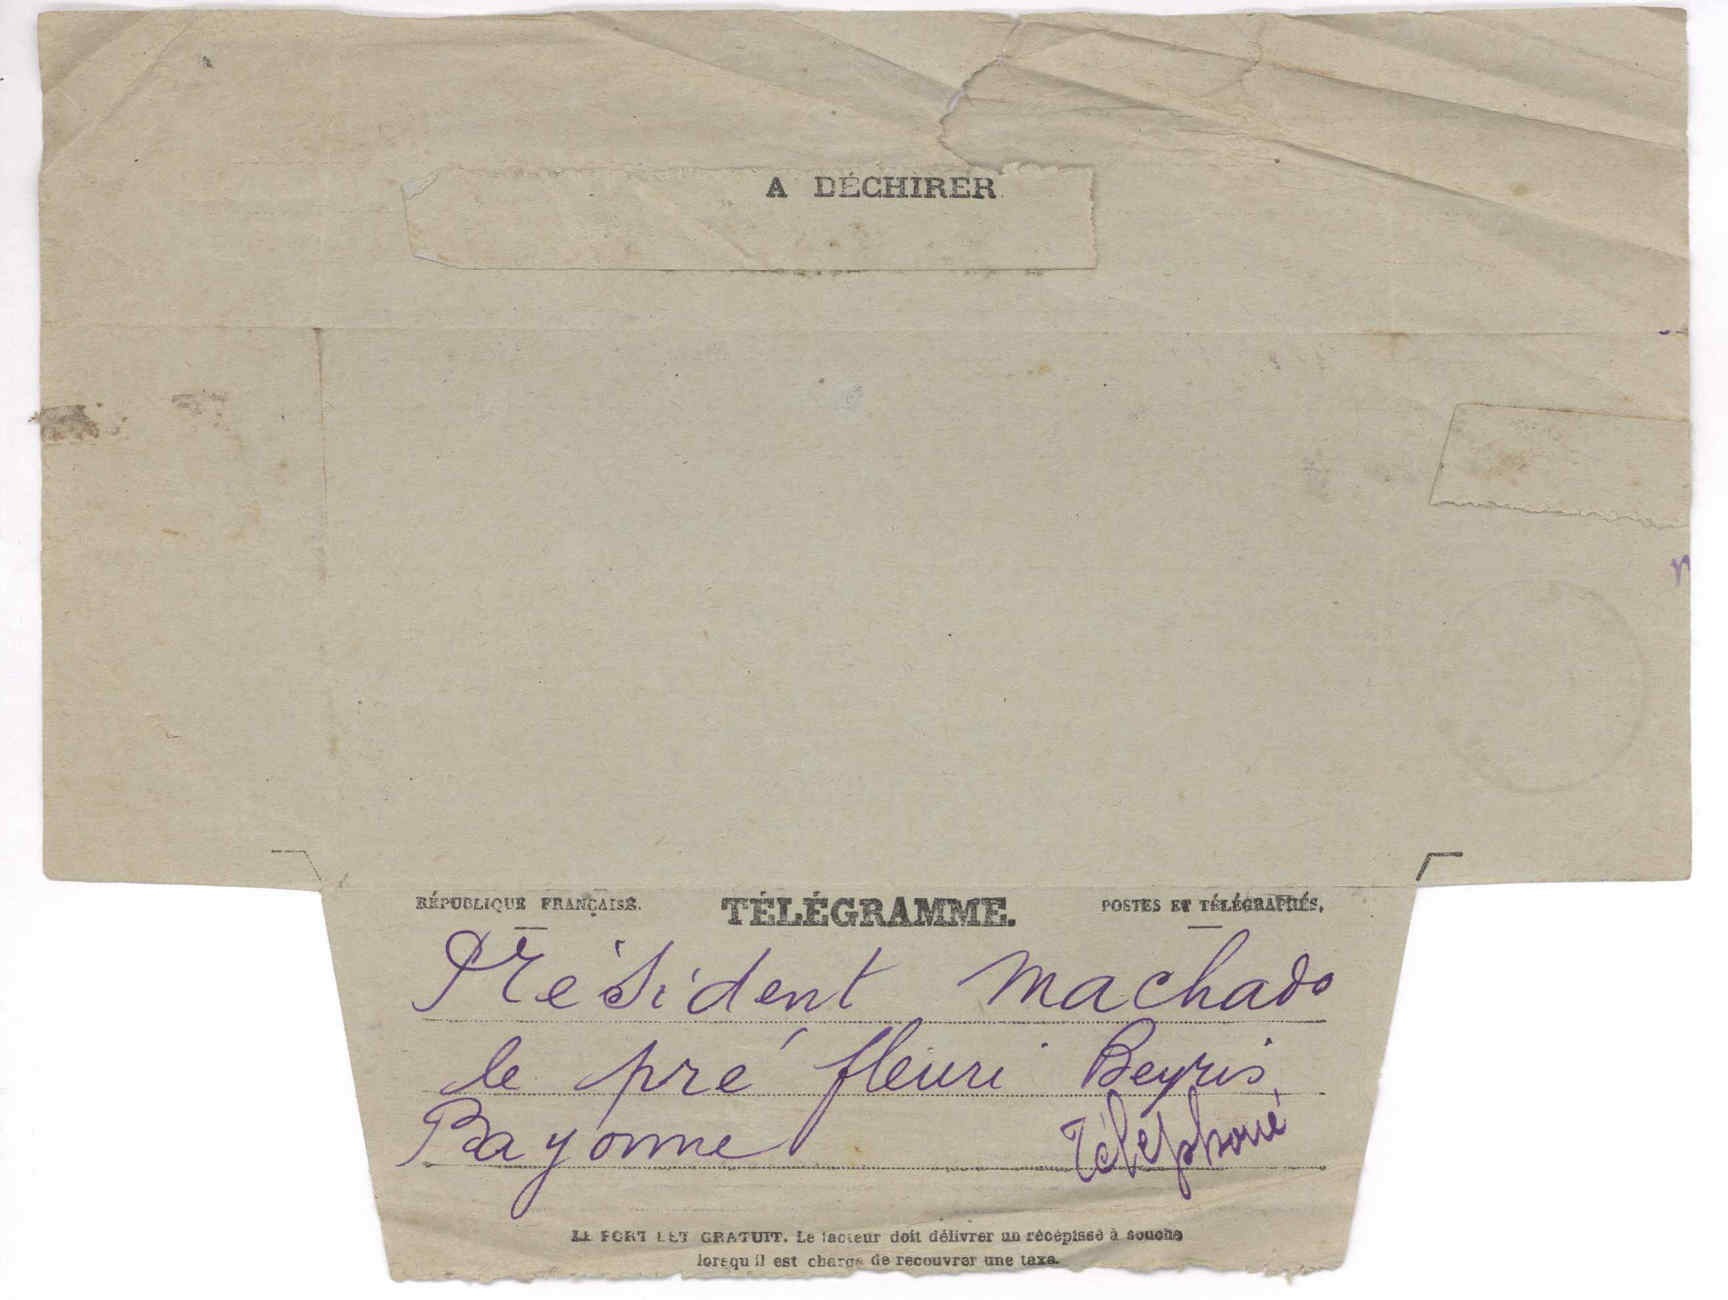 A DÉCHIRER
RÉPUBLIQUE FRANÇAISE. TÉLÉGRAMME. POSTES ET TÉLÉGRAPHES.
Président Machado
le pré fleuri Beyris
Bayonne Téléphoné
LE PORT EST GRATUIT. Le facteur doit délivrer un récépissé à souche
lorsqu'il est chargé de recouvrer une taxe.